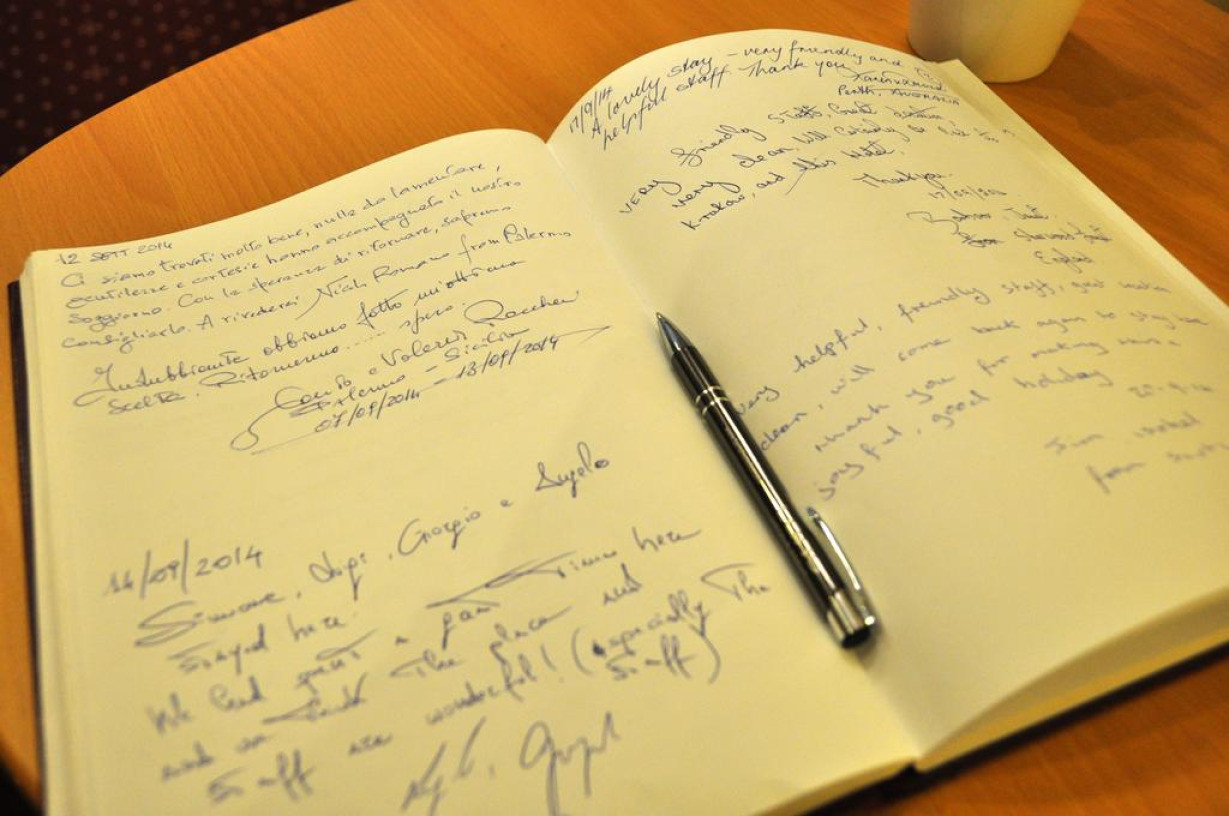 12 SETT 2014
Ci siamo trovati molto bene, nulla da lamentare,
gentilezze e cortesie hanno accompagnato il nostro
soggiorno. Con la speranza di ritornare, sapremo
consigliarlo. A rivederci Nicola Romano from Palermo
Indubbiamente abbiamo fatto un'ottima
scelta. Ritorneremo..... spero.
e Valeria
Palermo - Sicilia
07/09/2014 - 13/09/2014
14/09/2014
Simone, Luigi, Giorgio e Angelo
stayed here.
We had spent a great time here
and we think the place and
staff are wonderful! (especially the
staff)
17/9/14
A lovely stay - very friendly and
helpful staff Thank you
Perth, AUSTRALIA
VERY friendly staff, Great
very clean, will certainly
Krakow, and this Hotel.
Thankyou.
England
very helpful, friendly staff, good location
clean, will come back again to stay here
thank you for making
joyful, good holiday
from